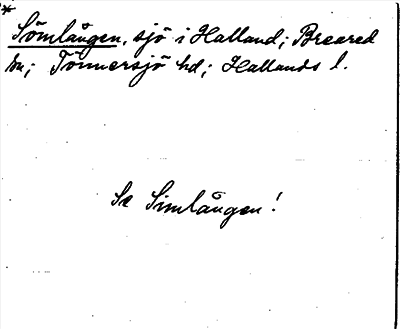 *
Sömlången, sjö i Halland; Breared
sn; Tönnersjö hd; Hallands l.
Se Simlången!